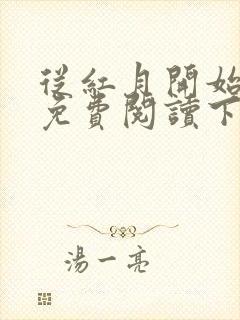 從紅月開始
免費閱讀下
湯一亮